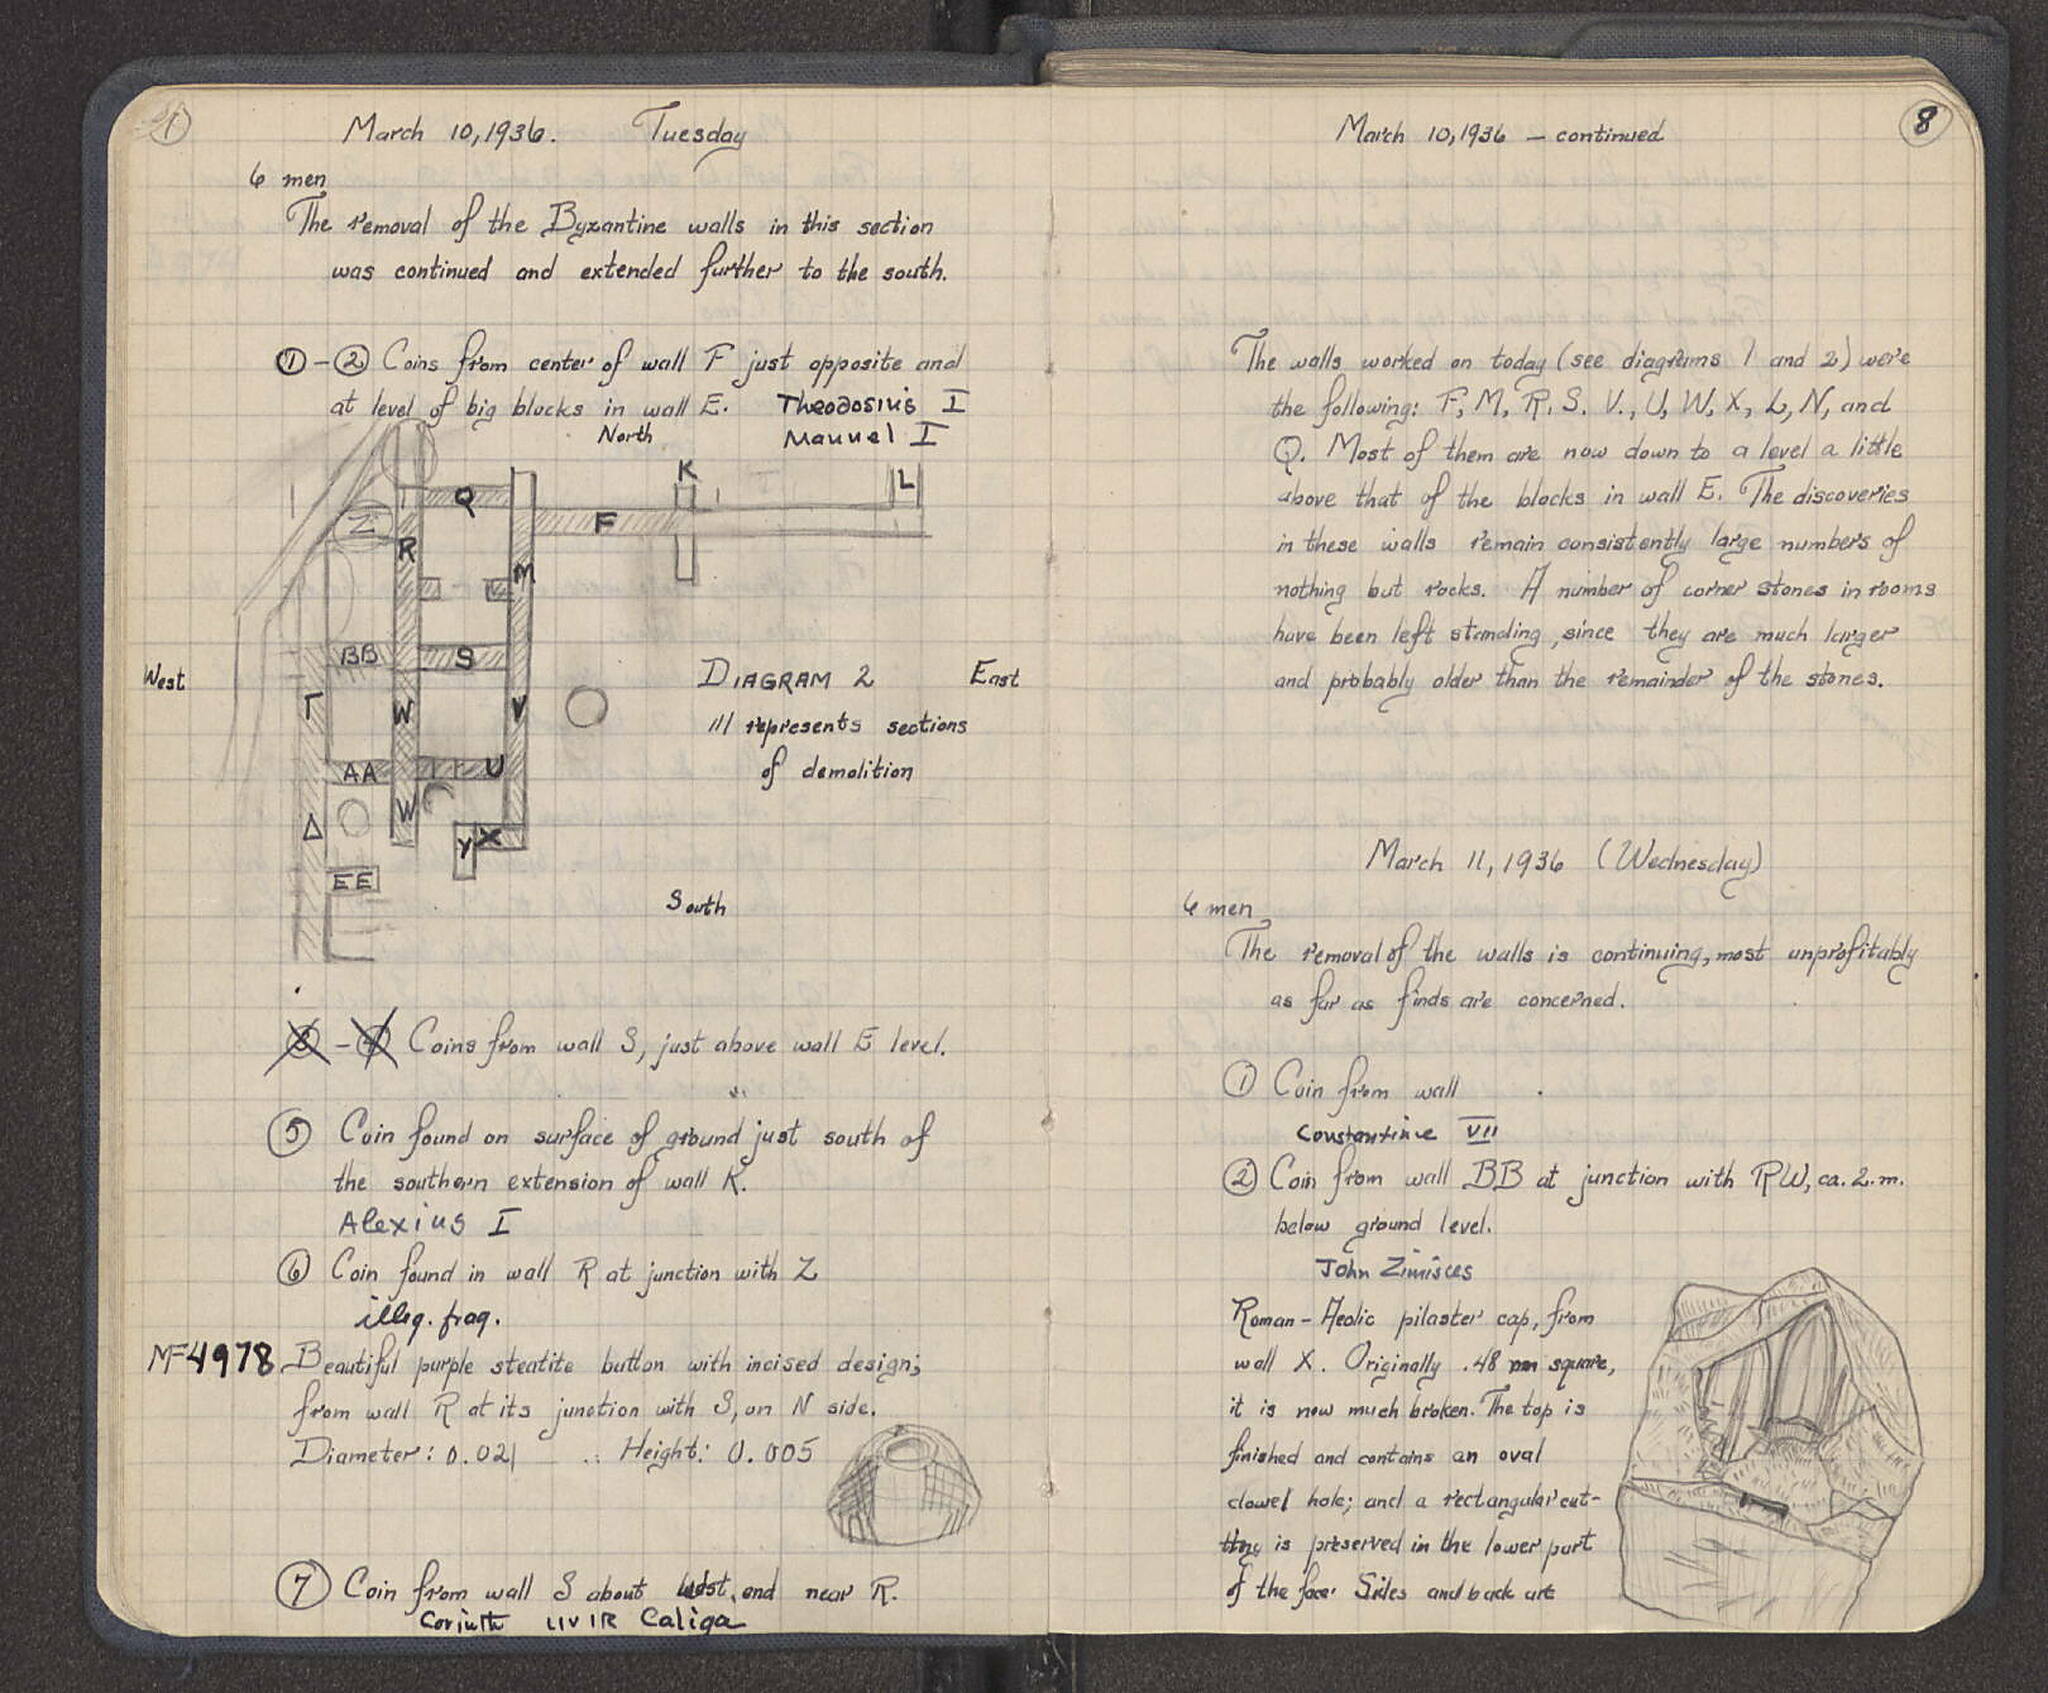 March 10, 1936. Tuesday
6 men
The removal of the Byzantine walls in this section
was continued and extended further to the south.
① – ② Coins from center of wall F just opposite and
at level of big blocks in wall E. Theodosius I
North Manuel I
K
L
Q
F
Z
R
M
BB
S
West
DIAGRAM 2
East
Γ
W
V
/// represents sections
of demolition
AA
U
W
Δ
Y X
EE
South
③ – ④ Coins from wall S, just above wall E level.
⑤ Coin found on surface of ground just south of
the southern extension of wall K.
Alexius I
⑥ Coin found in wall R at junction with Z
illeg. frag.
MF4978 Beautiful purple steatite button with incised design;
from wall R at its junction with S, on N side.
Diameter: 0.021 Height: 0.005
⑦ Coin from wall S about west end near R.
Corinth IIVIR Caliga
8
March 10, 1936 – continued
The walls worked on today (see diagrams 1 and 2) were
the following: F, M, R, S, V., U, W, X, L, N, and
Q. Most of them are now down to a level a little
above that of the blocks in wall E. The discoveries
in these walls remain consistently large numbers of
nothing but rocks. A number of corner stones in rooms
have been left standing, since they are much larger
and probably older than the remainder of the stones.
March 11, 1936 (Wednesday)
6 men
The removal of the walls is continuing, most unprofitably
as far as finds are concerned.
① Coin from wall
Constantine VII
② Coin from wall BB at junction with RW, ca. 2. m.
below ground level.
John Zimisces
Roman – Aeolic pilaster cap, from
wall X. Originally .48 m square,
it is now much broken. The top is
finished and contains an oval
dowel hole; and a rectangular cut-
ting is preserved in the lower part
of the face. Sides and back are